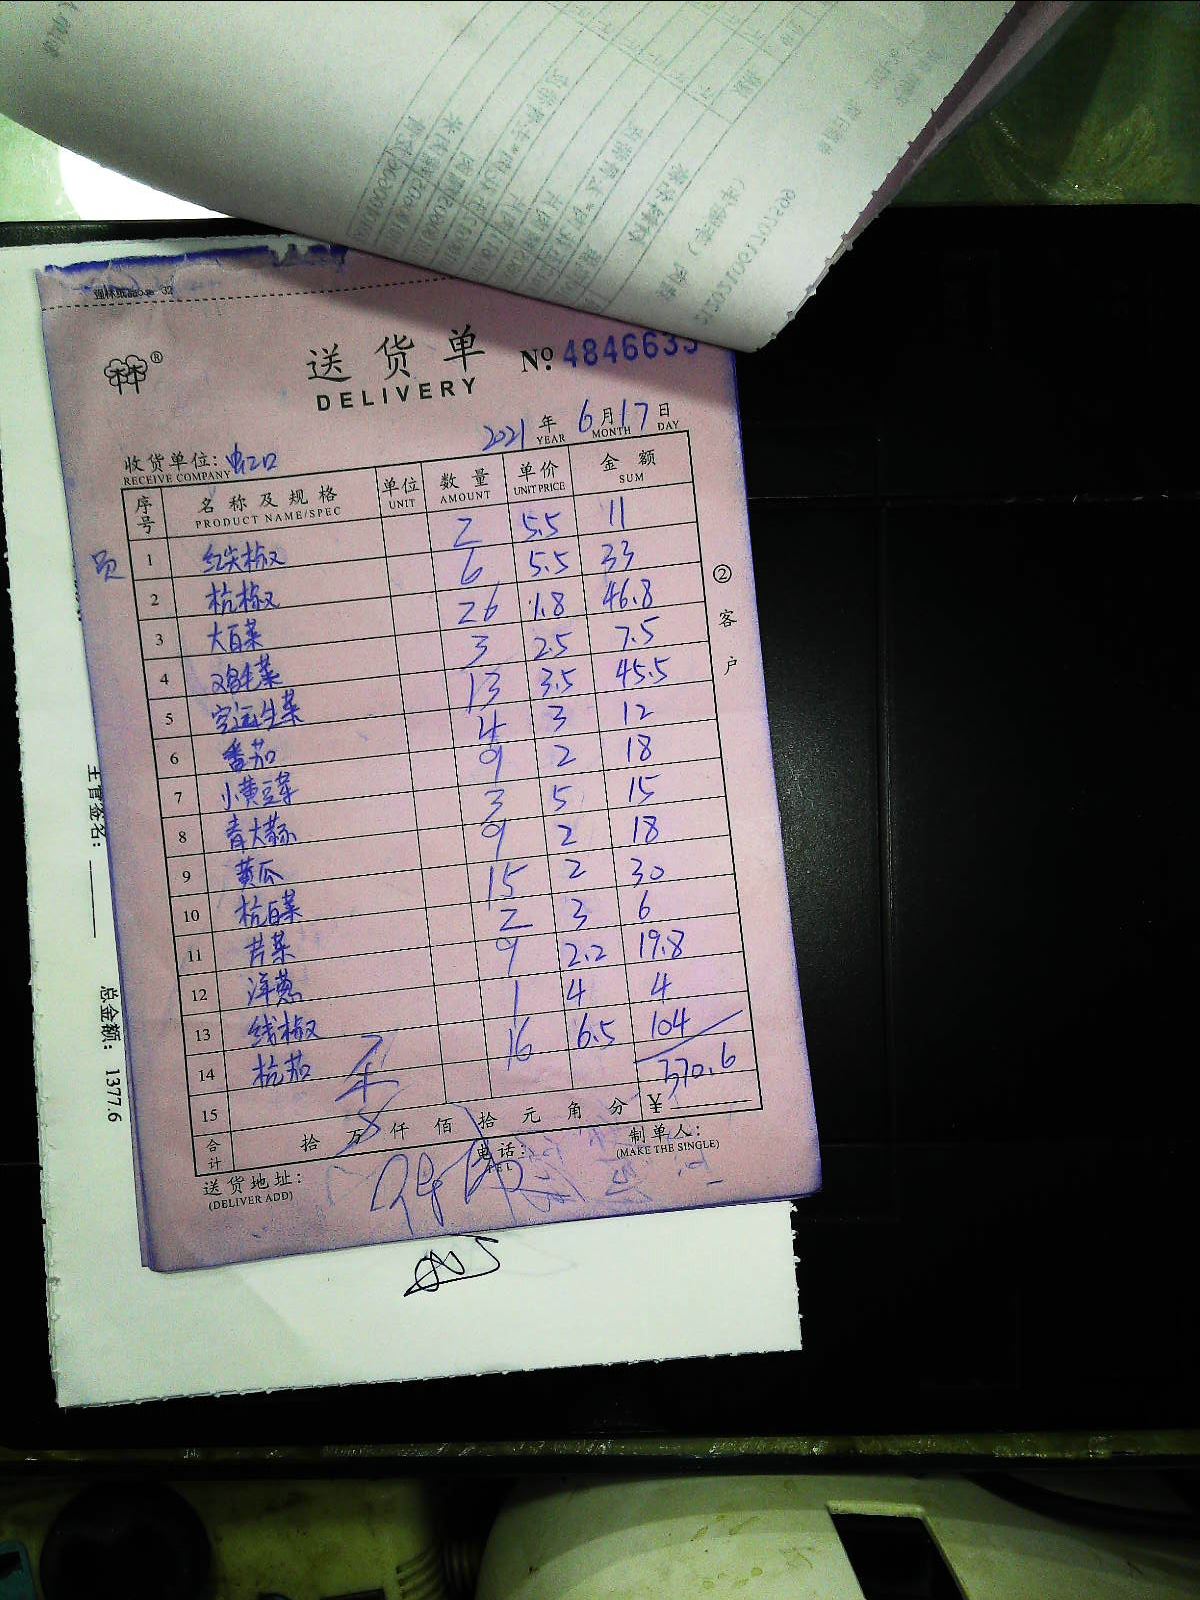 送货单
DELIVERY
№ 4846633
2021年 6月17日
YEAR MONTH DAY
收货单位: 虹口
RECEIVE COMPANY
序号 名称及规格 单位 数量 单价 金额
PRODUCT NAME/SPEC UNIT AMOUNT UNIT PRICE SUM
1 红尖椒 2 5.5 11
2 杭椒 6 5.5 33
3 大白菜 26 1.8 46.8
4 鸡毛菜 3 2.5 7.5
5 空运生菜 13 3.5 45.5
6 番茄 4 3 12
7 小黄豆芽 9 2 18
8 青大蒜 3 5 15
9 黄瓜 9 2 18
10 杭白菜 15 2 30
11 芹菜 2 3 6
12 洋葱 9 2.2 19.8
13 线椒 1 4 4
14 杭茄 16 6.5 104
15 370.6
合计 拾 万 仟 佰 拾 元 角 分 ¥
送货地址: 电话: 制单人:
(DELIVER ADD) TEL (MAKE THE SINGLE)
②客户
员
主管签名:
总金额: 1377.6